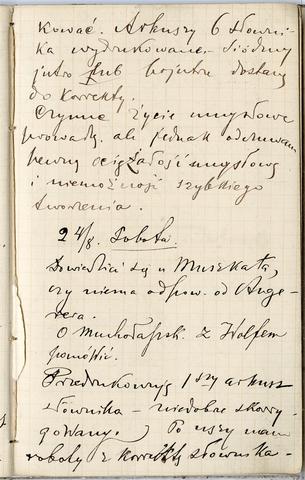 kować. Arkuszy 6 słowni-
ka wydrukowane. Siódmy
jutro lub pojutrze dostanę
do korrekty.
Czynne życie umysłowe
prowadzę, ale jednak odczuwam
pewną ociężałość umysłową
i niemożność szybkiego
tworzenia.
24/8. Sobota.
Dowiedzieć się u Muszkata,
czy niema odpow. od Unge-
rera.
O z Wolfem
pomówić.
Przedrukowuję 1szy arkusz
słownika – niedobrze skorry-
gowany.) Po uszy mam
roboty z korrektą słownika –